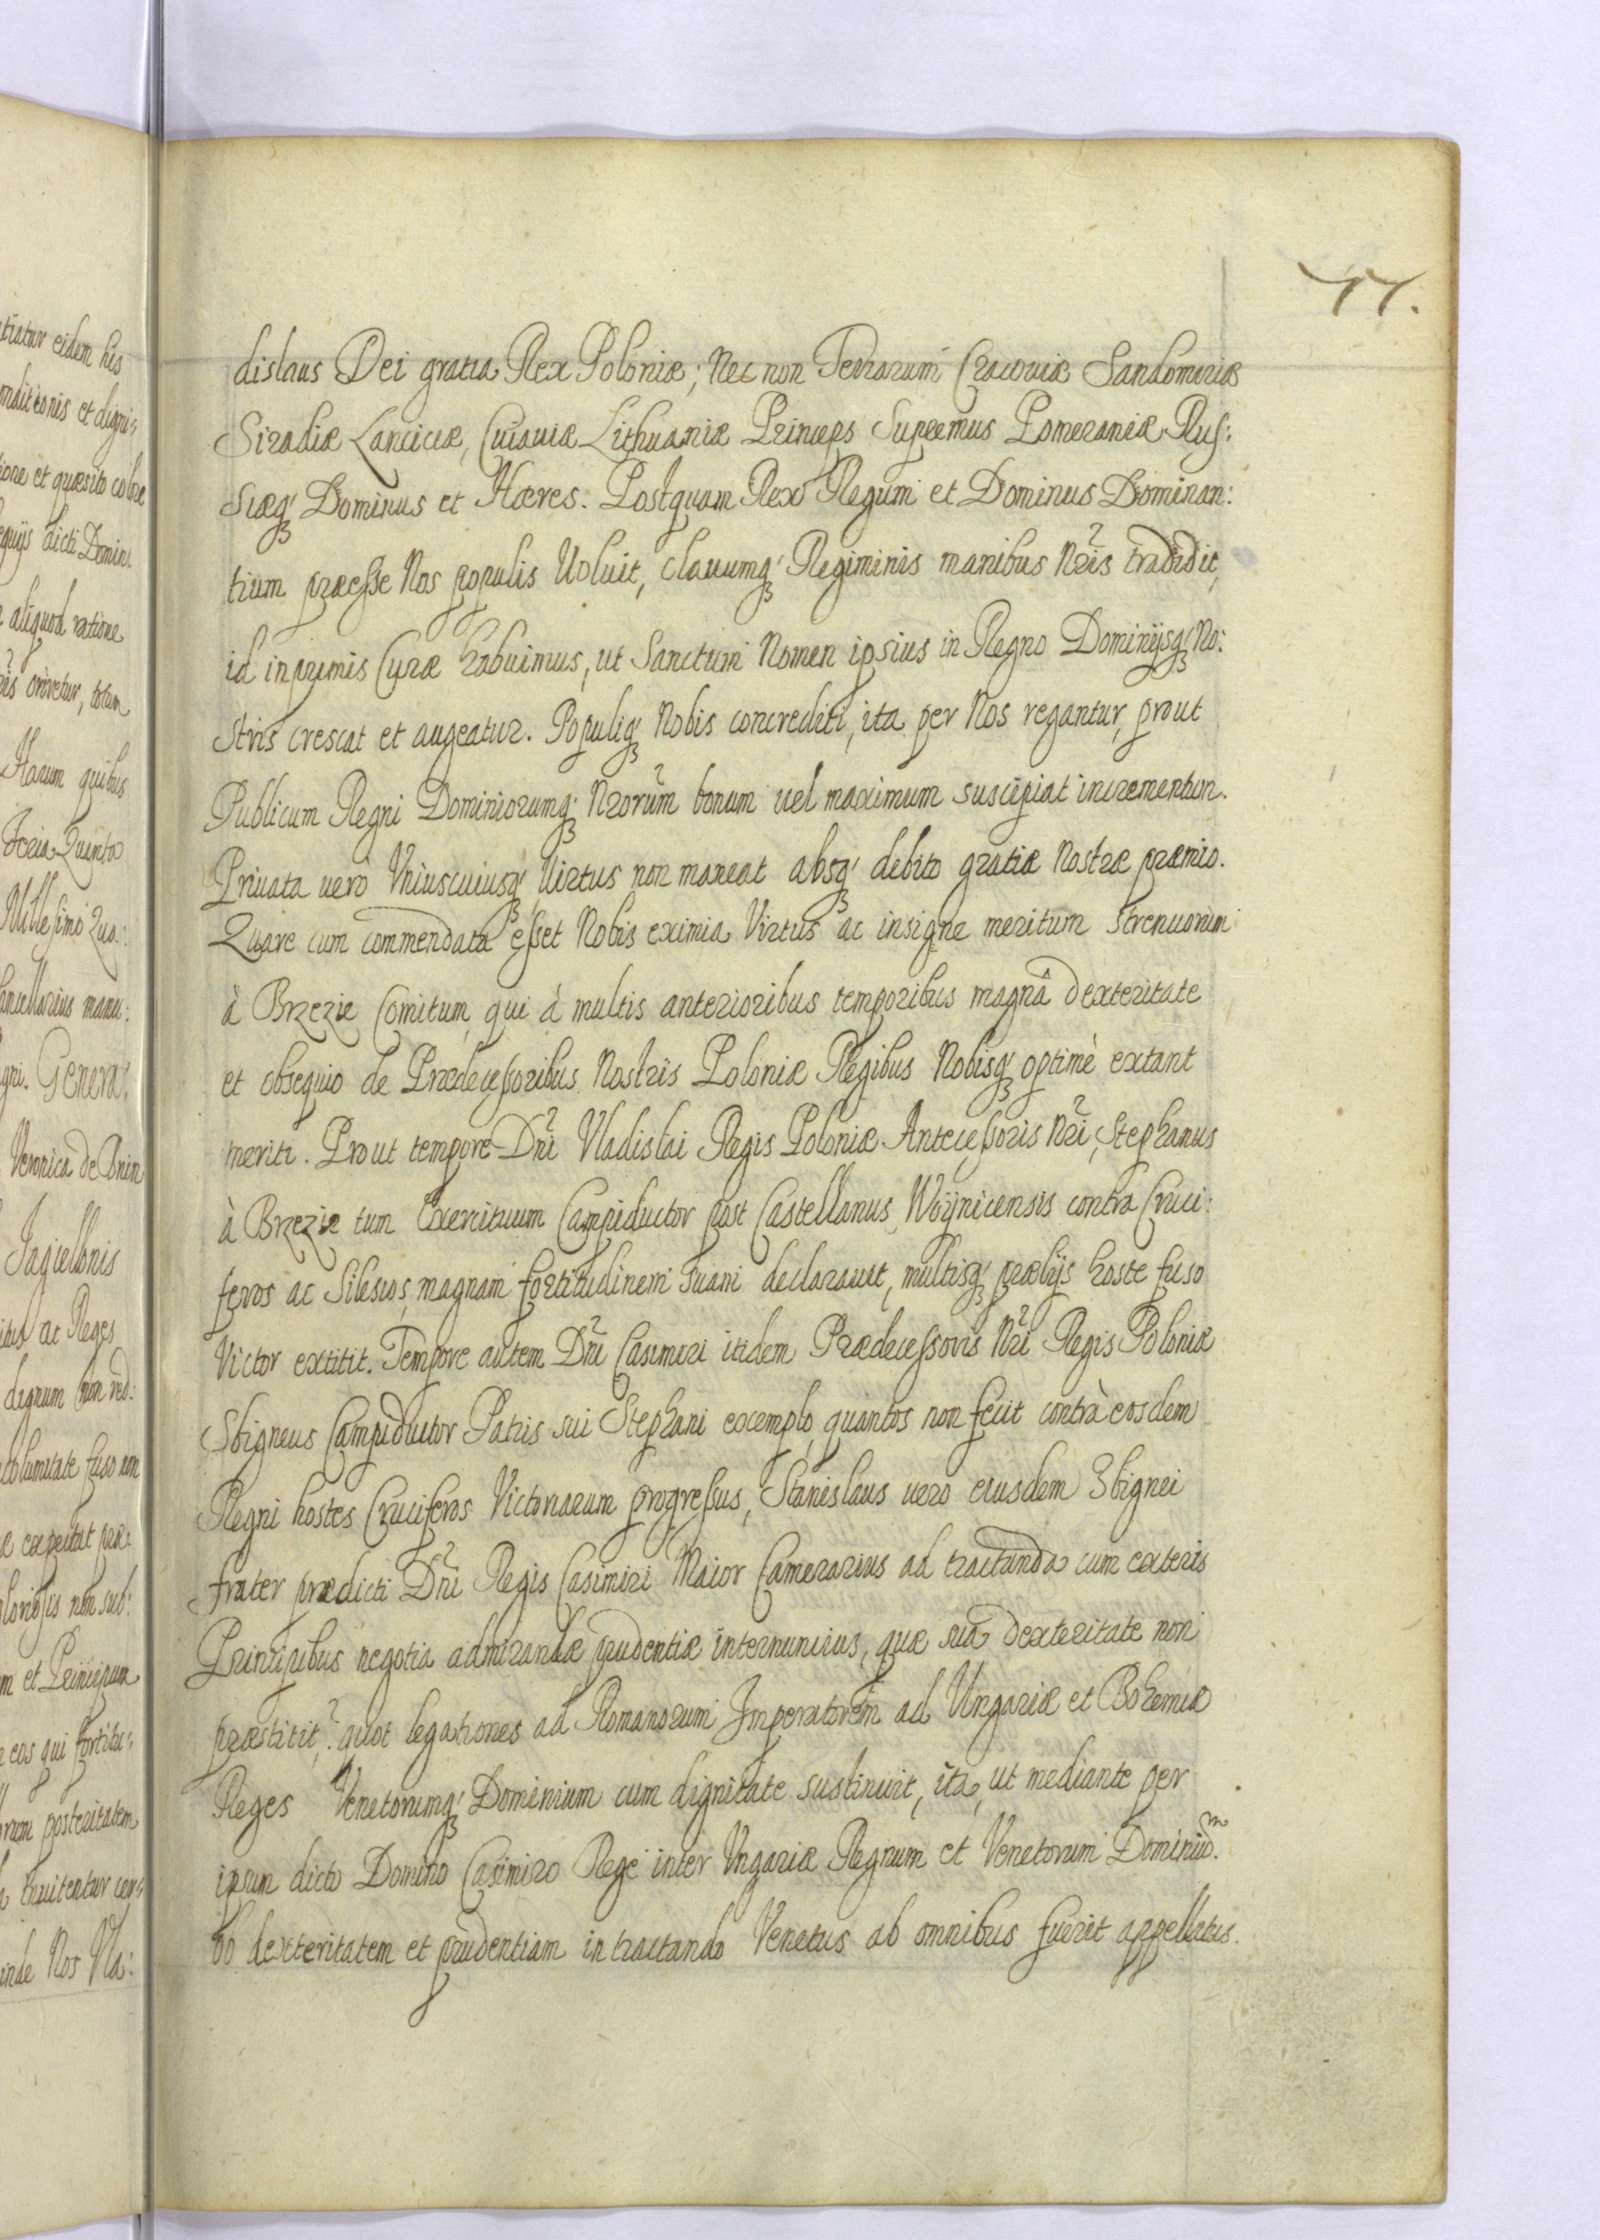 77.
dislaus Dei gratia Rex Poloniæ; Nec non Terrarum Cracoviæ Sandomiriæ
Siradiæ Lanciciæ, Cuiaviæ Lithuaniæ Princeps Supremus Pomeraniæ Rus:
siæq; Dominus et Hæres. Postquam Rex Regum et Dominus Dominan:
tium præesse Nos populis Voluit, Clauumq; Regiminis manibus Nris tradidit,
id inprimis Curæ habuimus, ut Sanctum Nomen ipsius in Regno Dominijsq; No:
stris crescat et augeatur. Populiq; Nobis concrediti, ita per Nos regantur, prout
Publicum Regni Dominiorumq; Nrorum bonum vel maximum suscipiat incrementum.
Priuata uero Vniuscuiusq; Virtus non maneat absq; debito gratiæ Nostræ præmio.
Quare cum commendata esset Nobis eximia Virtus ac insigne meritum Strenuorum
à Brzezie Comitum, qui à multis anterioribus temporibus magnâ dexteritate
et obsequio de Prædecessoribus Nostris Poloniæ Regibus Nobisq; optimè extant
meriti. Prout tempore Dni Vladislai Regis Poloniæ Antecessoris Nri, Stephanus
à Brzezie tum Exercituum Campiductor post Castellanus Woynicensis contra Cruci:
feros ac Silesios, magnam fortitudinem suam declarauit, multisq; prælijs hoste fuso
Victor extitit. Tempore autem Dni Casimiri itidem Prædecessoris Nri Regis Poloniæ
Sbigneus Campiductor Patris sui Stephani exemplo, quantos non fecit contrà eosdem
Regni hostes Cruciferos Victoriarum progressus, Stanislaus uero eiusdem Sbignei
frater prædicti Dni Regis Casimiri Maior Camerarius ad tractanda cum exteris
Principibus negotia admirandæ prudentiæ internuncius, quæ suâ dexteritate non
præstitit,? quot legationes ad Romanorum Imperatorem ad Vngariæ et Bohemiæ
Reges Venetorumq; Dominium cum dignitate sustinuit, ita, ut mediante per
ipsum dicto Domino Casimiro Rege inter Vngariæ Regnum et Venetorum Dominiũ.
ob dexteritatem et prudentiam in tractando Venetus ab omnibus fuerit appellatus.